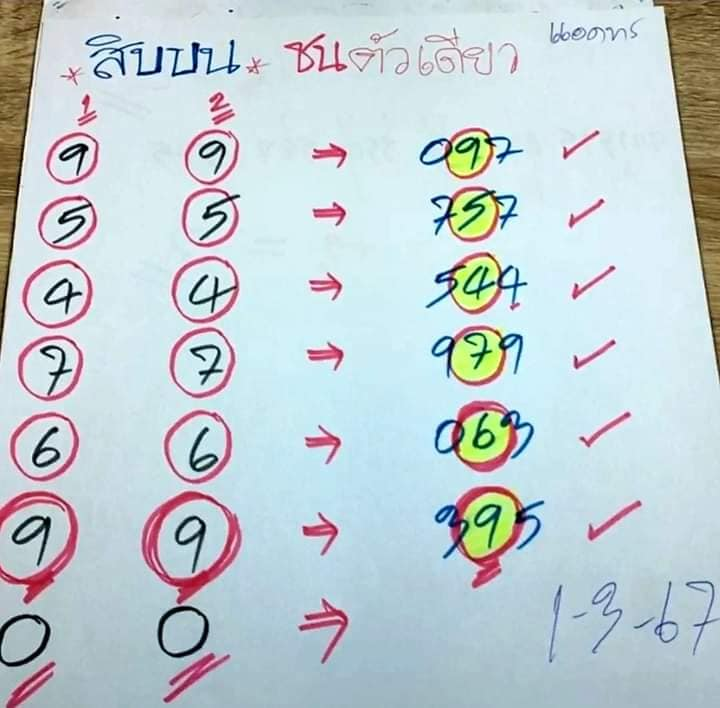 * สิบบน * ชนตัวเดียว
1 2
9 9 → 097 ✓
5 5 → 757 ✓
4 4 → 544 ✓
7 7 → 979 ✓
6 6 → 063 ✓
9 9 → 395 ✓
0 0 →
1-3-67